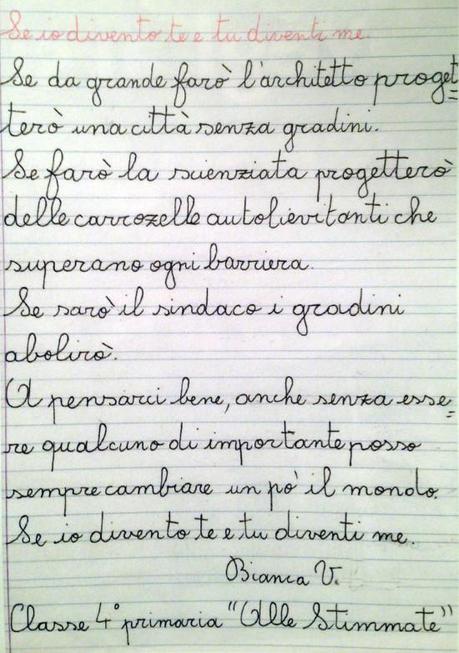 Se io divento te e tu diventi me.
Se da grande farò l'architetto proget=
terò una città senza gradini.
Se farò la scienziata progetterò
delle carrozelle autolievitanti che
superano ogni barriera.
Se sarò il sindaco i gradini
abolirò.
A pensarci bene, anche senza esse=
re qualcuno di importante posso
sempre cambiare un pò il mondo.
Se io divento te e tu diventi me.
Bianca V.
Classe 4° primaria "Alle Stimmate"